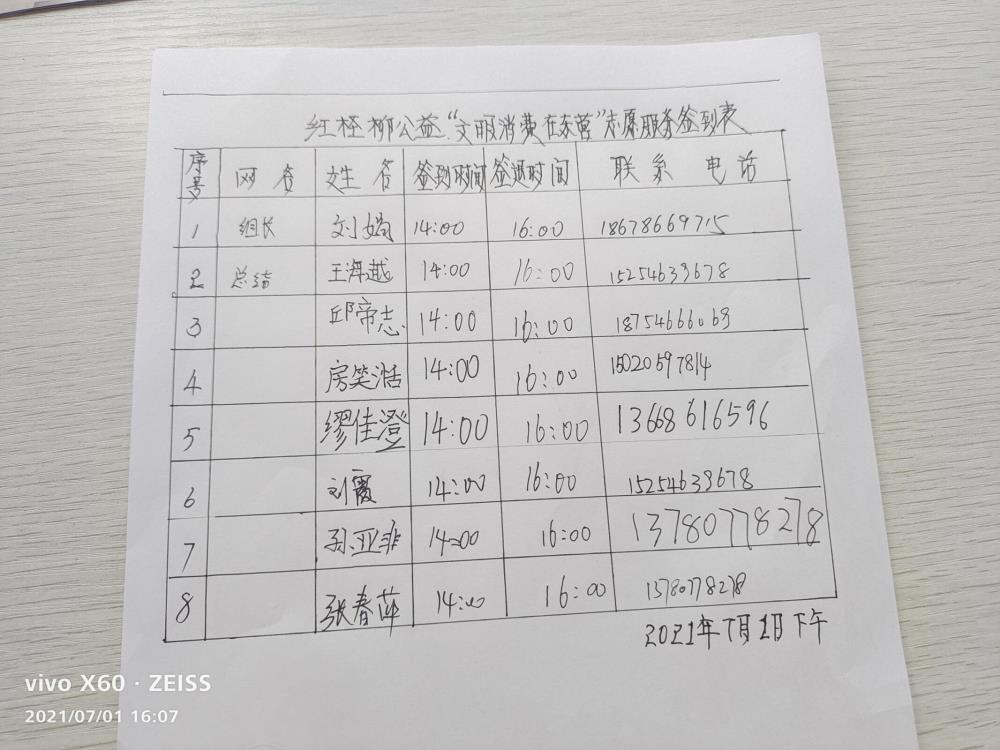 红柽柳公益“文明消费在东营”志愿服务签到表
序号 网名 姓名 签到时间 签退时间 联系电话
1 组长 刘娟 14:00 16:00 18678669715
2 总结 王海越 14:00 16:00 15254639678
3 邱帝志 14:00 16:00 18754666069
4 房笑湉 14:00 16:00 15020597814
5 缪佳澄 14:00 16:00 13668616596
6 刘霞 14:00 16:00 15254639678
7 孙亚非 14:00 16:00 13780778278
8 张春萍 14:00 16:00 13780778278
2021年7月1日下午
vivo X60 · ZEISS
2021/07/01 16:07